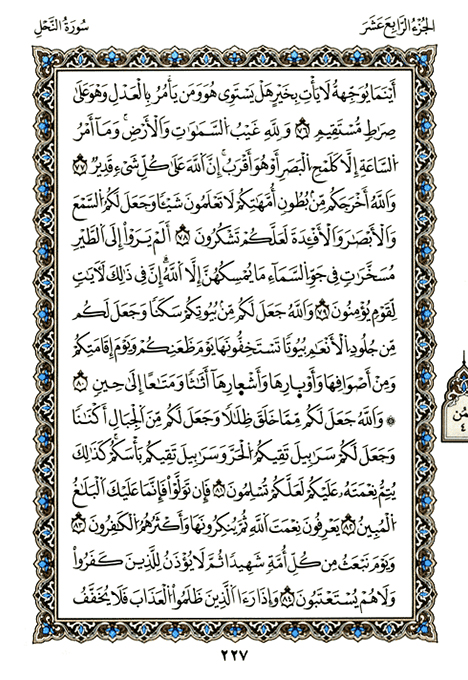 الجزء الرابع عشر
سورة النحل
أَيْنَمَا يُوَجِّههُّ لَا يَأْتِ بِخَيْرٍ هَلْ يَسْتَوِى هُوَ وَمَن يَأْمُرُ بِالْعَدْلِ وَهُوَ عَلَىٰ
صِرَاطٍ مُّسْتَقِيمٍ ٧٦ وَلِلَّهِ غَيْبُ السَّمَٰوَٰتِ وَالْأَرْضِ وَمَا أَمْرُ
السَّاعَةِ إِلَّا كَلَمْحِ الْبَصَرِ أَوْ هُوَ أَقْرَبُ إِنَّ اللَّهَ عَلَىٰ كُلِّ شَىْءٍ قَدِيرٌ ٧٧
وَاللَّهُ أَخْرَجَكُم مِّنۢ بُطُونِ أُمَّهَٰتِكُمْ لَا تَعْلَمُونَ شَيْـًٔا وَجَعَلَ لَكُمُ السَّمْعَ
وَالْأَبْصَٰرَ وَالْأَفْـِٔدَةَ لَعَلَّكُمْ تَشْكُرُونَ ٧٨ أَلَمْ يَرَوْا۟ إِلَى الطَّيْرِ
مُسَخَّرَٰتٍ فِى جَوِّ السَّمَآءِ مَا يُمْسِكُهُنَّ إِلَّا اللَّهُ إِنَّ فِى ذَٰلِكَ لَءَايَٰتٍ
لِّقَوْمٍ يُؤْمِنُونَ ٧٩ وَاللَّهُ جَعَلَ لَكُم مِّنۢ بُيُوتِكُمْ سَكَنًا وَجَعَلَ لَكُم
مِّن جُلُودِ الْأَنْعَٰمِ بُيُوتًا تَسْتَخِفُّونَهَا يَوْمَ ظَعْنِكُمْ وَيَوْمَ إِقَامَتِكُمْ
وَمِنْ أَصْوَافِهَا وَأَوْبَارِهَا وَأَشْعَارِهَآ أَثَٰثًا وَمَتَٰعًا إِلَىٰ حِينٍ ٨٠
وَاللَّهُ جَعَلَ لَكُم مِّمَّا خَلَقَ ظِلَٰلًا وَجَعَلَ لَكُم مِّنَ الْجِبَالِ أَكْنَٰنًا
وَجَعَلَ لَكُمْ سَرَٰبِيلَ تَقِيكُمُ الْحَرَّ وَسَرَٰبِيلَ تَقِيكُم بَأْسَكُمْ كَذَٰلِكَ
يُتِمُّ نِعْمَتَهُۥ عَلَيْكُمْ لَعَلَّكُمْ تُسْلِمُونَ ٨١ فَإِن تَوَلَّوْا۟ فَإِنَّمَا عَلَيْكَ الْبَلَٰغُ
الْمُبِينُ ٨٢ يَعْرِفُونَ نِعْمَتَ اللَّهِ ثُمَّ يُنكِرُونَهَا وَأَكْثَرُهُمُ الْكَٰفِرُونَ ٨٣
وَيَوْمَ نَبْعَثُ مِن كُلِّ أُمَّةٍ شَهِيدًا ثُمَّ لَا يُؤْذَنُ لِلَّذِينَ كَفَرُوا۟
وَلَا هُمْ يُسْتَعْتَبُونَ ٨٤ وَإِذَا رَءَا الَّذِينَ ظَلَمُوا۟ الْعَذَابَ فَلَا يُخَفَّفُ
٢٢٧